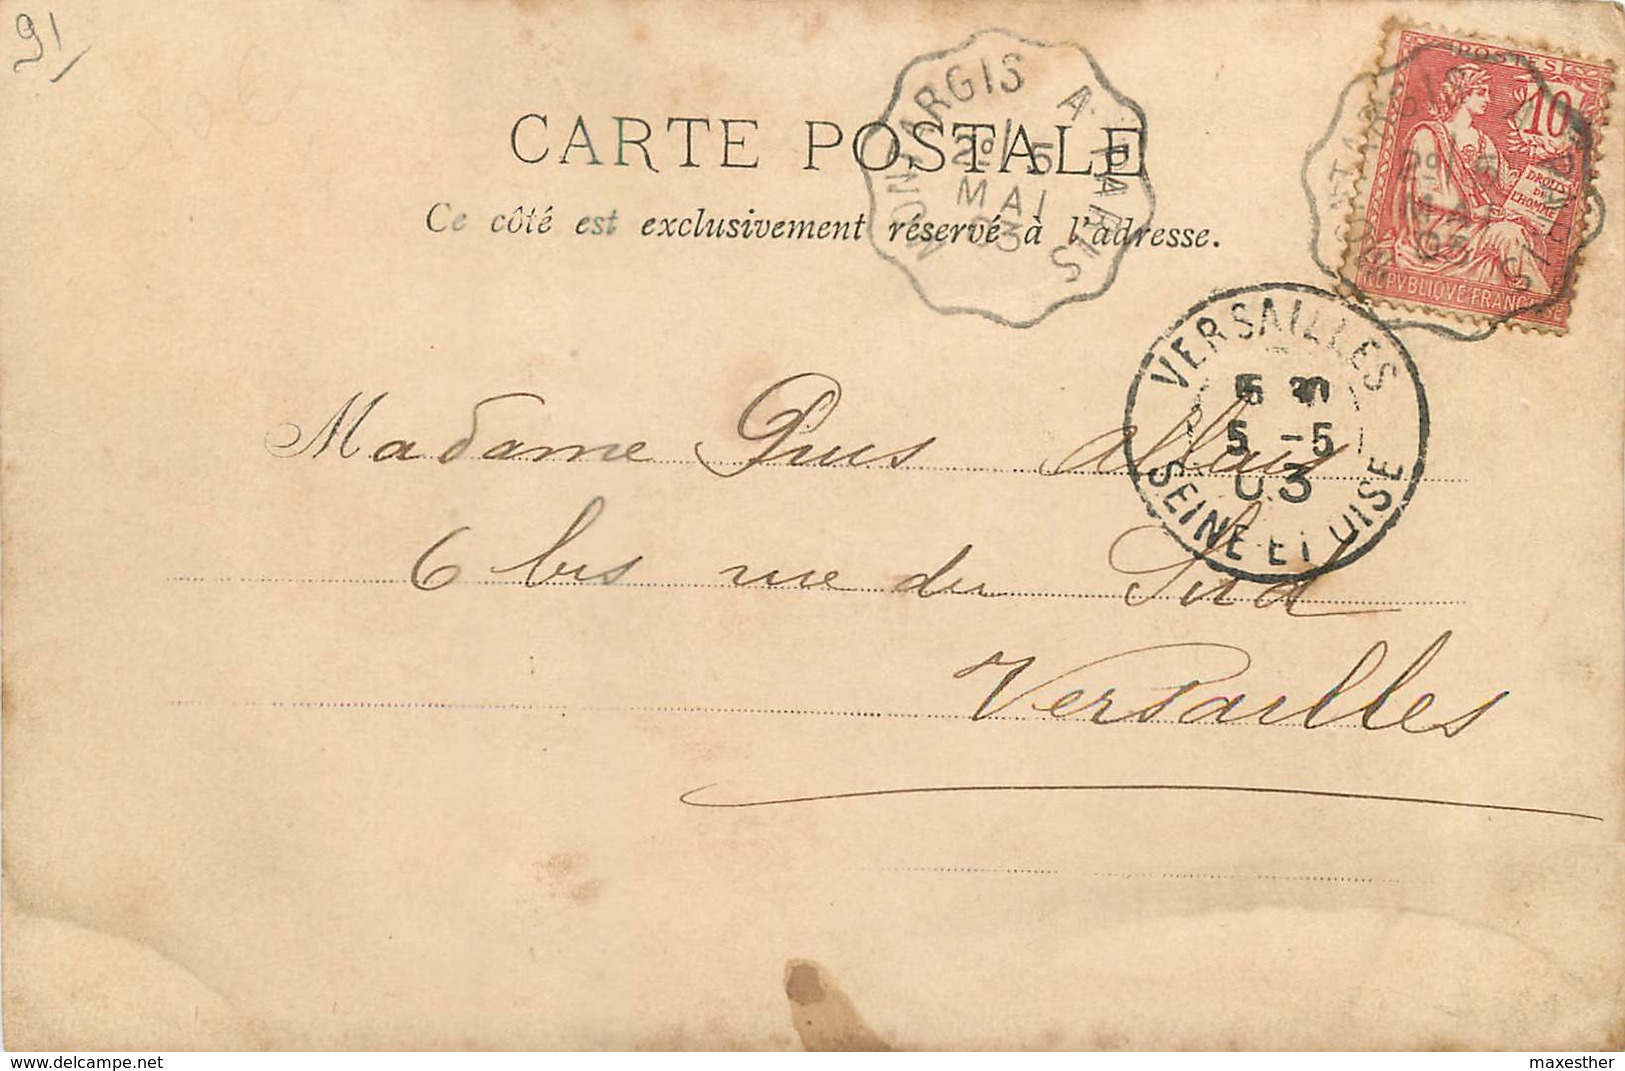 91
CARTE POSTALE
Ce côté est exclusivement réservé à l'adresse.
MONTARGIS A PARIS
2° 5
MAI
03
POSTES
10
DROITS
DE
L'HOMME
REPVBLIQVE FRANÇAISE
MONTARGIS A PARIS
2° 5
MAI
03
VERSAILLES
5 -5
03
SEINE ET OISE
Madame Pius Allais
6 bis rue du Sud
Versailles
delcampe.net
maxesther